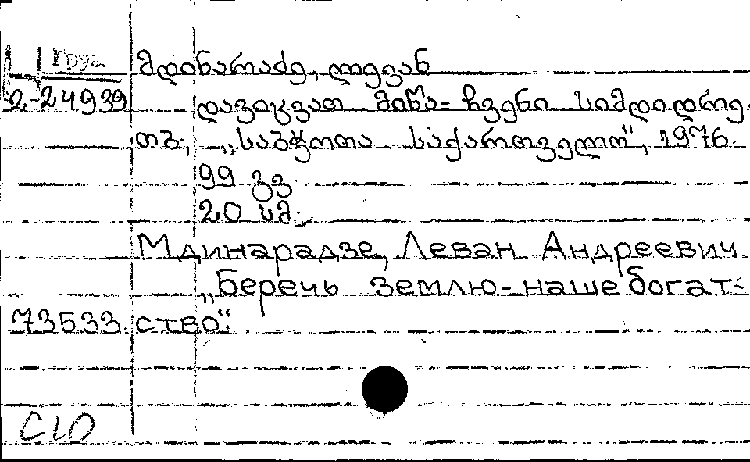 Груз
მდინარაძე, ლევან
2-24939 დავიცვათ მიწა-ჩვენი სიმდიდრე.
თბ., „საბჭოთა საქართველო“, 1976.
99 გვ
20 სმ.
Мдинарадзе, Леван Андреевич
„Беречь землю-наше богат-
73533. ство“.